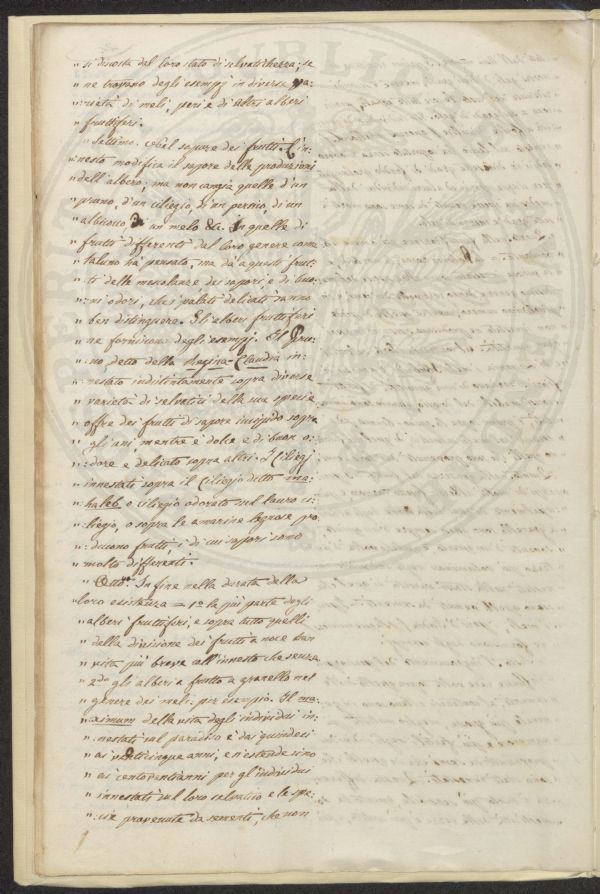 " si discosta dal loro stato di selvatichezza; se
" ne trovano degli esempj in diverse va„
": rietà di meli, peri e di altri alberi
" fruttiferi.
" Settimo. col sapore dei frutti. L'in„
": nesto modifica il sapore delle produzioni
" dell'albero; ma non cangia quelle d'un
" pruno, d'un ciliegio, di un persico, di un
" albicocco di un melo &c. In quelle di
" frutti differenti dal loro genere come
" taluno ha pensato, ma dà a questi frut:
": ti delle mescolanze dei sapori, e di buo:
": ni odori, che i palati delicati sanno
" ben distinguere. Gli alberi fruttiferi
" ne forniscono degli esempj. Il Pru:
": no, detto della Regina-Claudia in:
": nestato indistintamente sopra diverse
" varietà di selvatici della sua specie
" offre dei frutti di sapore insipido sopra
" gli uni, mentre è dolce e di buon o:
": dore e delicato sopra altri. I Ciliegj
" innestati sopra il Ciliegio detto ma:
": haleb o ciliegio odorato sul lauro ci:
": liegio, o sopra le amarine lagnose pro:
": ducono frutti, i di cui sapori sono
" molto differenti.
" Ottvo. In fine nella durata della
" loro esistenza = 1o la più parte degli
" alberi fruttiferi, e sopra tutto quelli
" della divisione dei frutti a noce han
" vita più breve coll'innesto che senza.
" 2do gli alberi a frutto a granello nel
" genere dei meli: per esempio. Il ma:
": ximum della vita degli individui in:
": nestati sul paradiso è dai quindeci
" ai venticinque anni, e s'estende sino
" ai centoventi anni per gl'individui
" innestati sul loro selvatico e le spe:
": cie provenute da sementi, che non